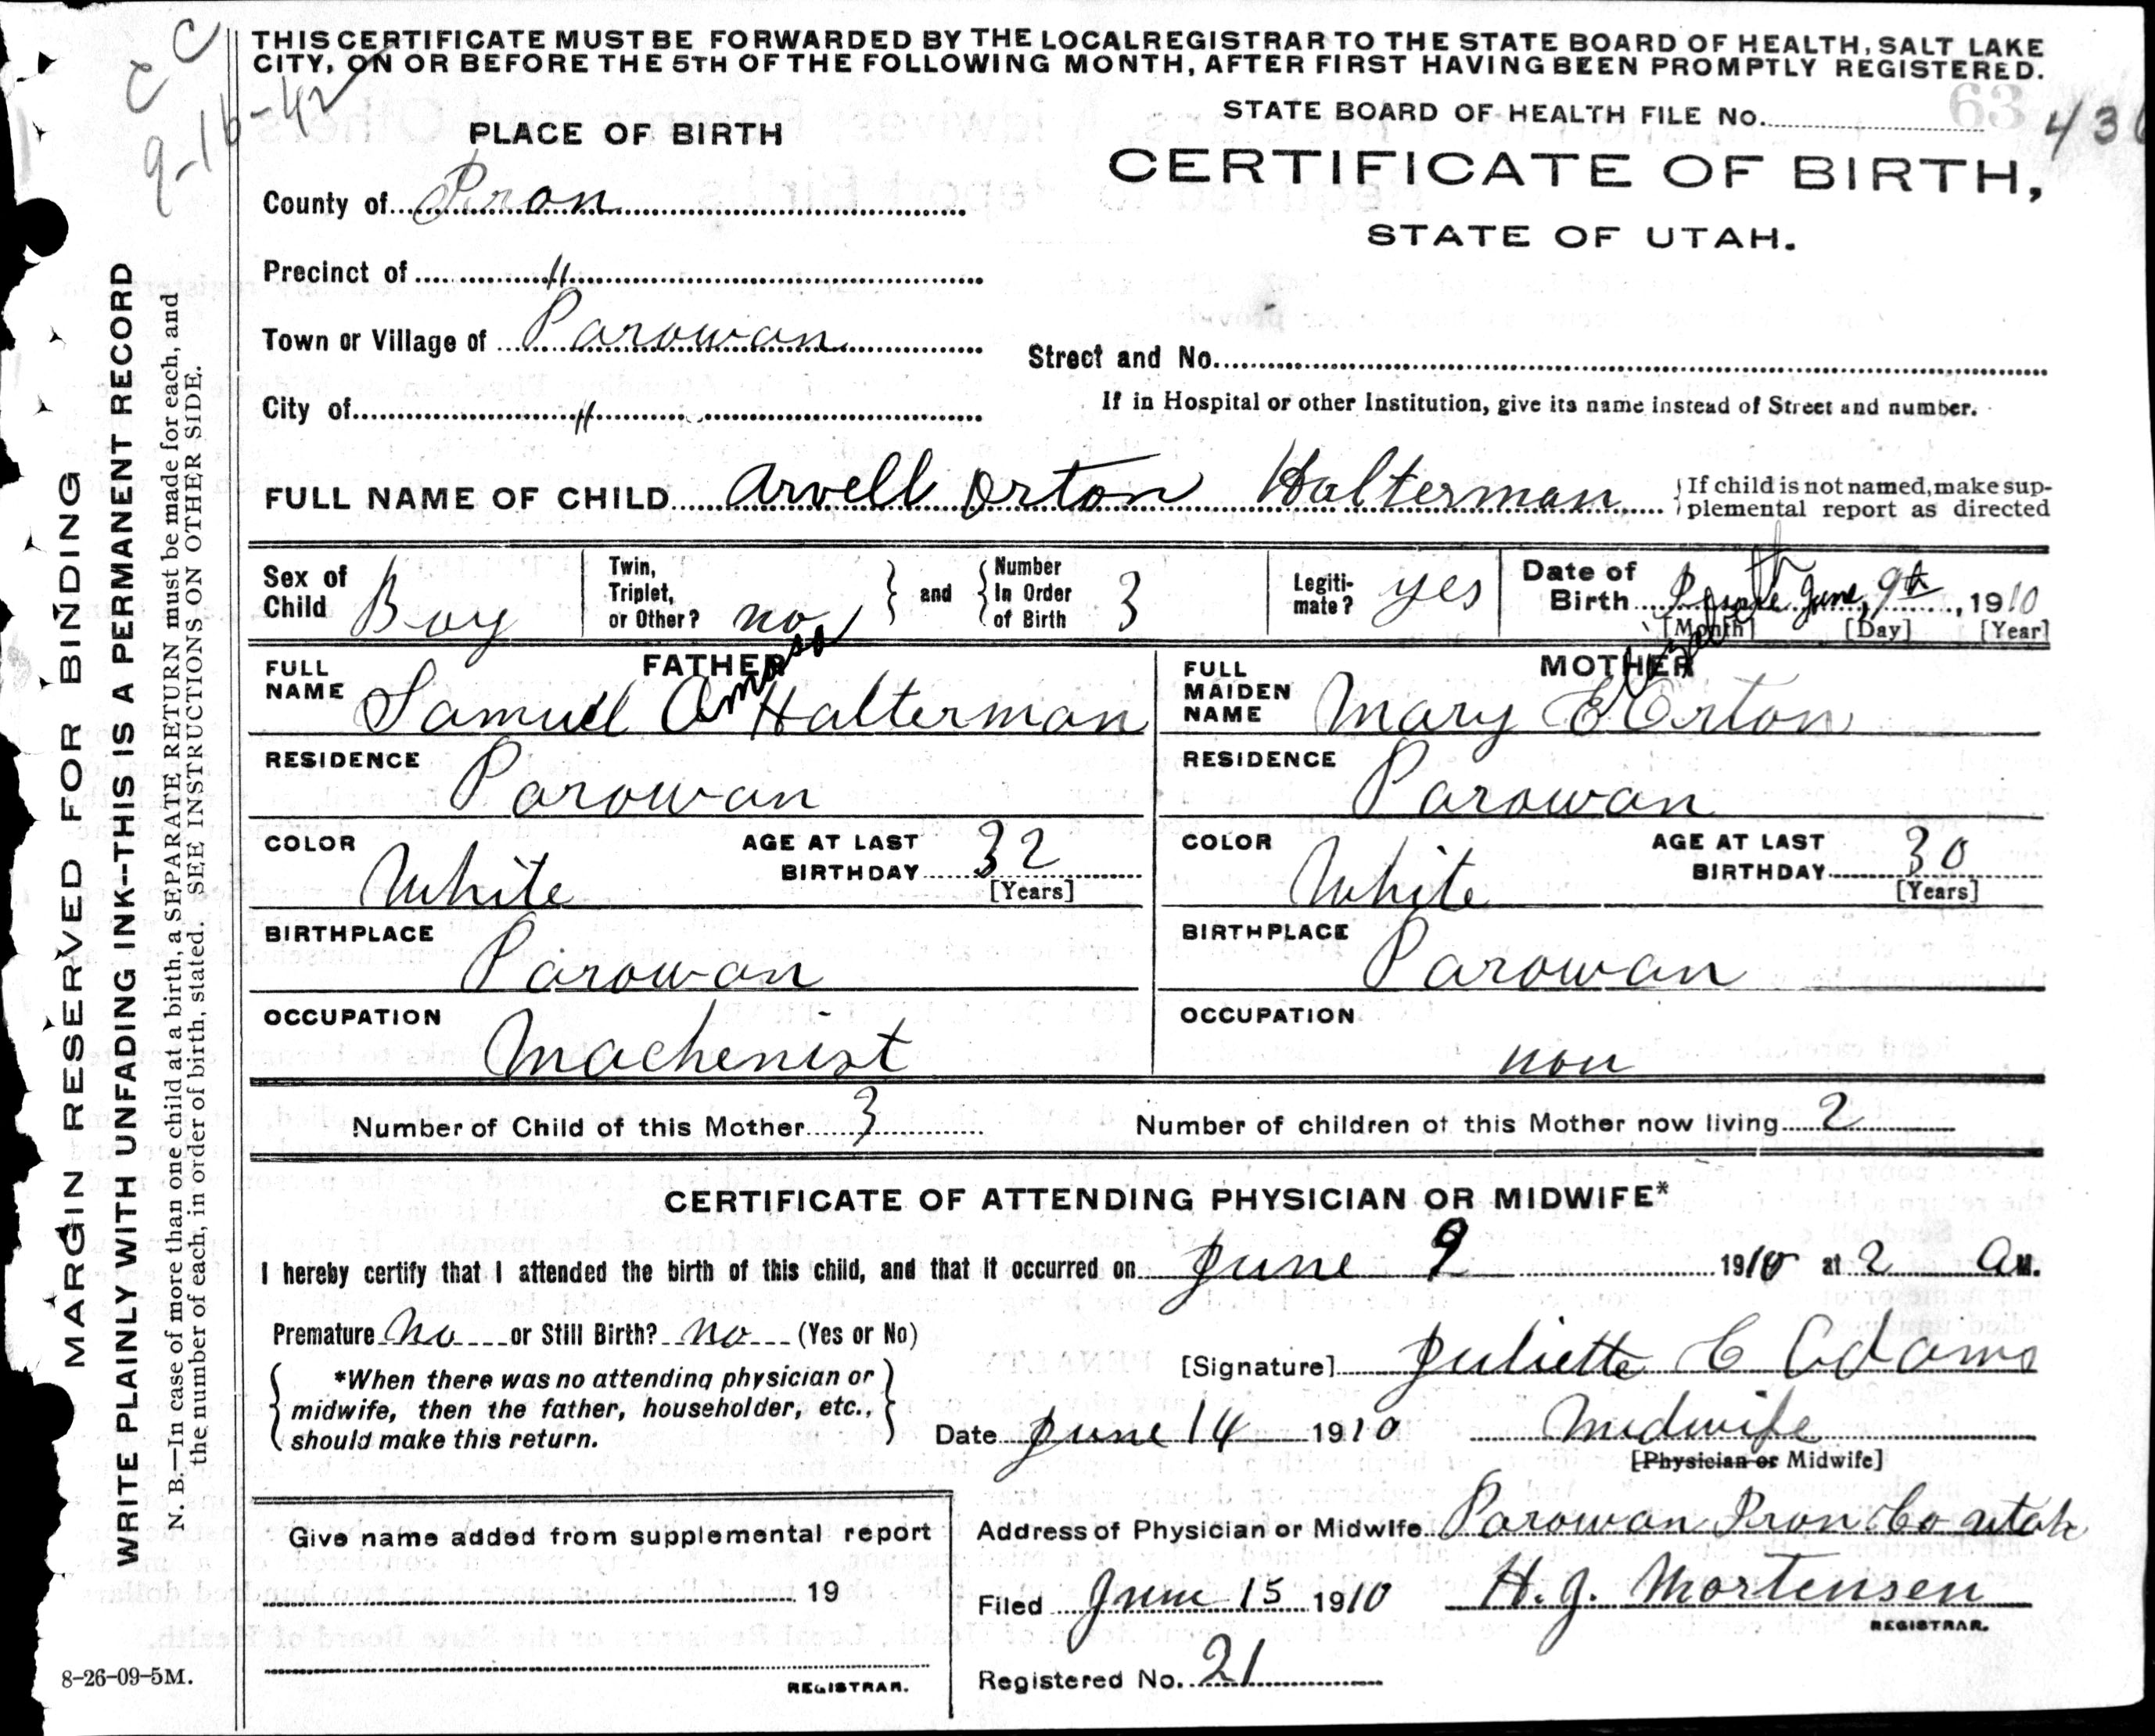 CC
9-16-42
THIS CERTIFICATE MUST BE FORWARDED BY THE LOCAL REGISTRAR TO THE STATE BOARD OF HEALTH, SALT LAKE
CITY, ON OR BEFORE THE 5TH OF THE FOLLOWING MONTH, AFTER FIRST HAVING BEEN PROMPTLY REGISTERED.
STATE BOARD OF HEALTH FILE NO. 63
PLACE OF BIRTH
CERTIFICATE OF BIRTH,
STATE OF UTAH.
County of Iron
Precinct of "
Town or Village of Parowan
Street and No.
City of "
If in Hospital or other Institution, give its name instead of Street and number.
FULL NAME OF CHILD Arvell Orton Halterman
If child is not named, make sup-
plemental report as directed
Sex of Child Boy
Twin, Triplet, or Other? no and Number In Order of Birth 3
Legiti-mate? yes
Date of Birth June 9th, 1910
[Month] [Day] [Year]
FATHER
FULL NAME Samuel Amasa Halterman
RESIDENCE Parowan
COLOR White AGE AT LAST BIRTHDAY 32 [Years]
BIRTHPLACE Parowan
OCCUPATION Machenist
MOTHER
FULL MAIDEN NAME Mary E Orton
RESIDENCE Parowan
COLOR White AGE AT LAST BIRTHDAY 30 [Years]
BIRTHPLACE Parowan
OCCUPATION non
Number of Child of this Mother 3 Number of children of this Mother now living 2
CERTIFICATE OF ATTENDING PHYSICIAN OR MIDWIFE*
I hereby certify that I attended the birth of this child, and that it occurred on June 9 1910 at 2 A M.
Premature no or Still Birth? no (Yes or No)
[Signature] Juliette C Adams
*When there was no attending physician or
midwife, then the father, householder, etc.,
should make this return.
Date June 14 1910 Midwife
[Physician or Midwife]
Give name added from supplemental report
19
REGISTRAR.
Address of Physician or Midwife Parowan Iron Co Utah
Filed June 15 1910 H. J. Mortensen
REGISTRAR.
Registered No. 21
8-26-09-5M.
MARGIN RESERVED FOR BINDING
WRITE PLAINLY WITH UNFADING INK--THIS IS A PERMANENT RECORD
N. B.—In case of more than one child at a birth, a SEPARATE RETURN must be made for each, and
the number of each, in order of birth, stated. SEE INSTRUCTIONS ON OTHER SIDE.